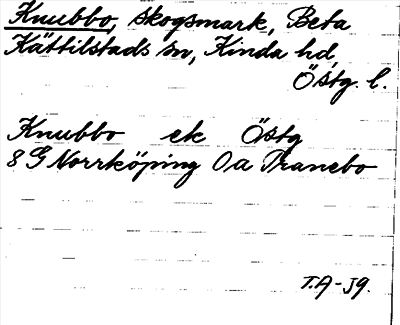 Knubbo, skogsmark, Beta
Kättilstads sn, Kinda hd,
Östg. l.
Knubbo ek Östg
8 G Norrköping 0a Tranebo
T.A-39.